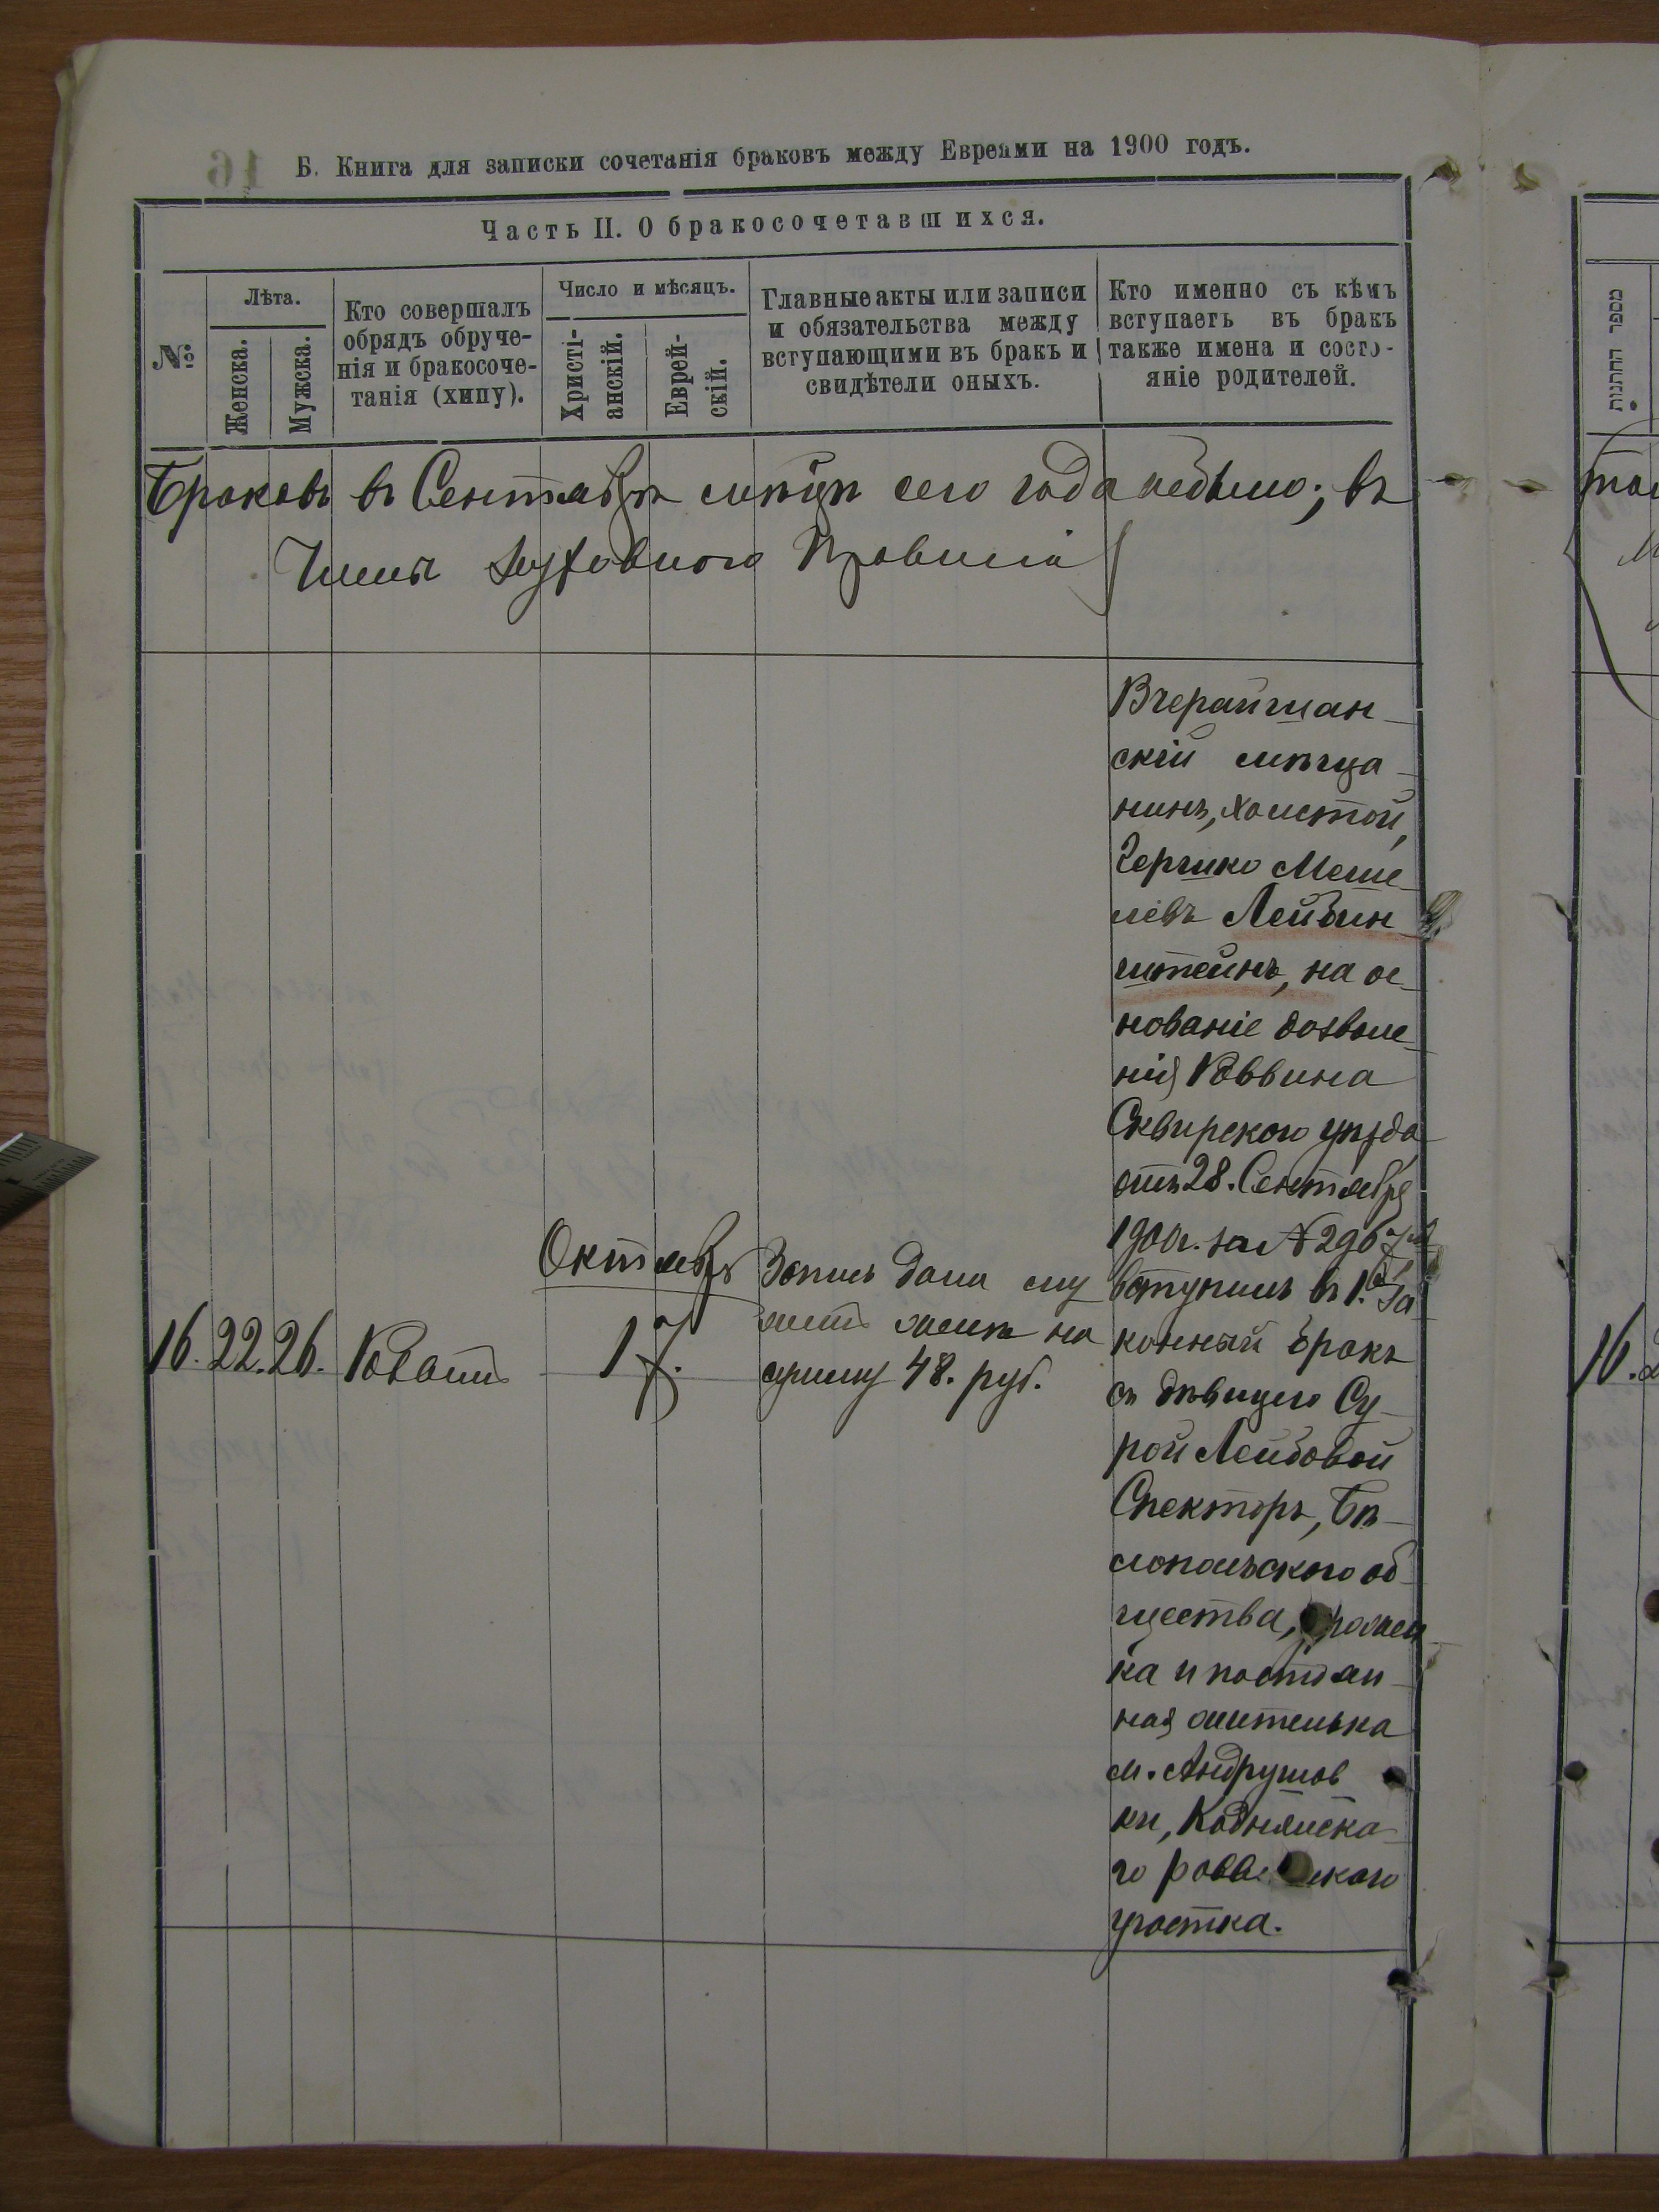 16
Б. Книга для записки сочетанія браковъ между Евреями на 1900 годъ.
Часть II. О бракосочетавшихся.
№
Лѣта.
Женска.
Мужска.
Кто совершалъ
обрядъ обруче-
нія и бракосоче-
танія (хипу).
Число и мѣсяцъ.
Христі-
анскій.
Еврей-
скій.
Главные акты или записи
и обязательства между
вступающими въ бракъ и
свидѣтели оныхъ.
Кто именно съ кѣмъ
вступаетъ въ бракъ
также имена и состо-
яніе родителей.
Браковъ въ Сентябрѣ мѣсяцѣ сего года небыло; въ
Члены Духовного Правленія
16. 22. 26.
Октябрь
17.
Запись дана му
жемъ женѣ на
сумму 48. руб.
Вчерайшан-
скій мѣща-
нинъ, холостой,
Гершко Меше-
левъ Лейбин-
штейнъ, на ос-
нованіе дозволе-
нія Раввина
Сквирского уѣзда
отъ 28. Сентября
1900г. за №296
вступилъ въ 1й За
конный бракъ
съ дѣвицею Су-
рой Лейбовой
Спекторъ, Бѣ-
лопольского об-
щества,
ка и постоян-
ная жителька
м. Андрушов
ки, Коднянска-
го
участка.
מספר החתנות
16.